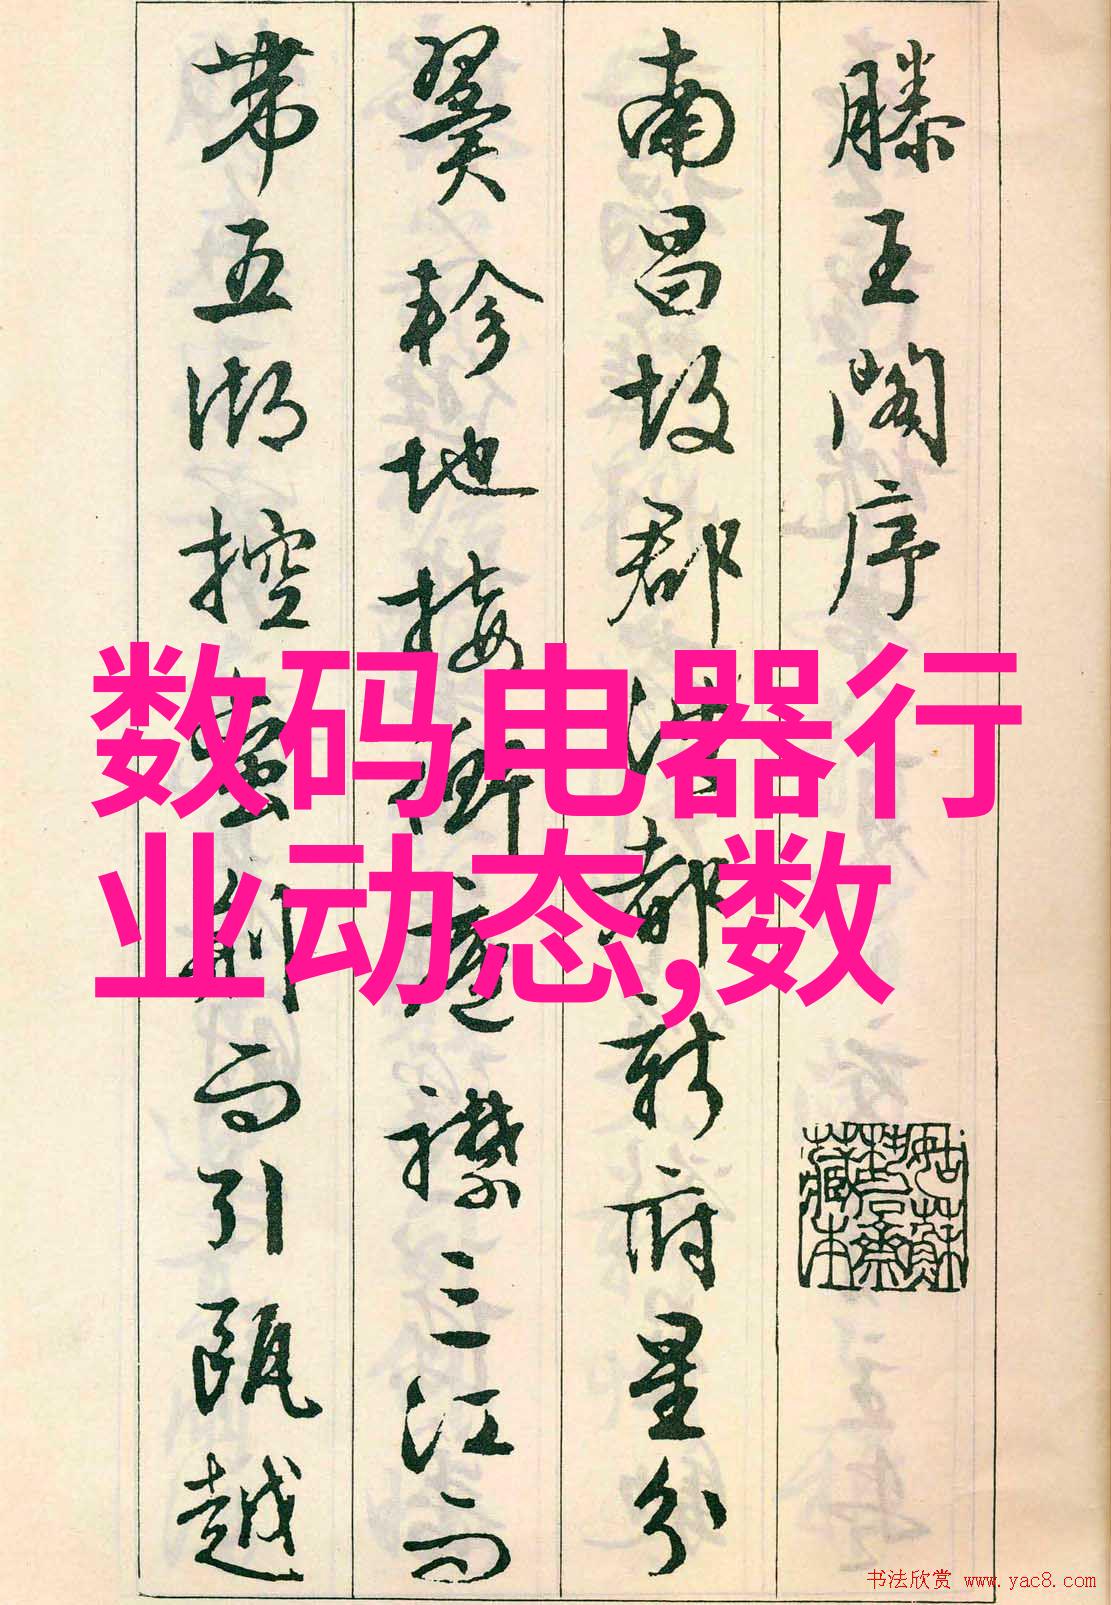 滕王閣序
南昌故郡洪都新府星分
翼軫地接衡廬襟三江而
帶五湖控蠻荆而引甌越
数码电器行
业动态,数
书法欣赏 www.yac8.com